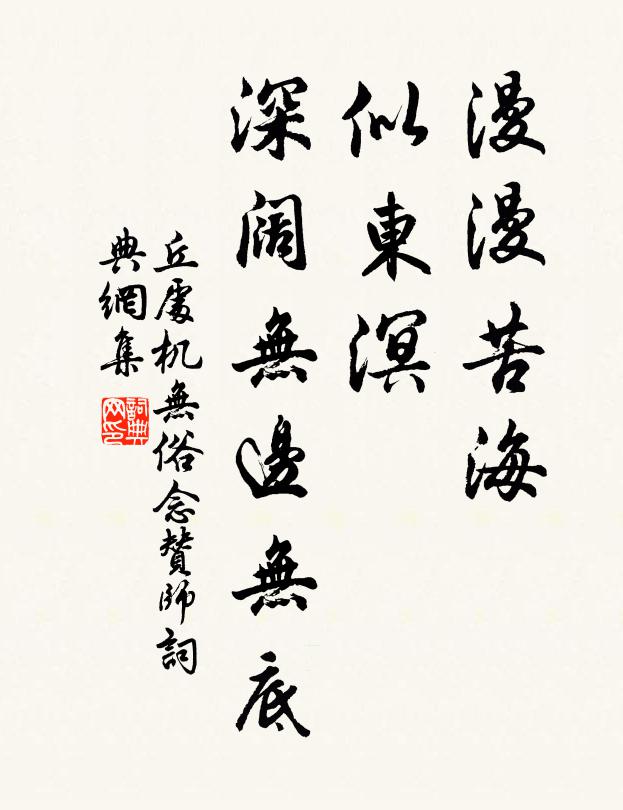 漫漫苦海
似東溟
深闊無邊無底
丘處机無俗念賛師詞
典網集
詞典网印